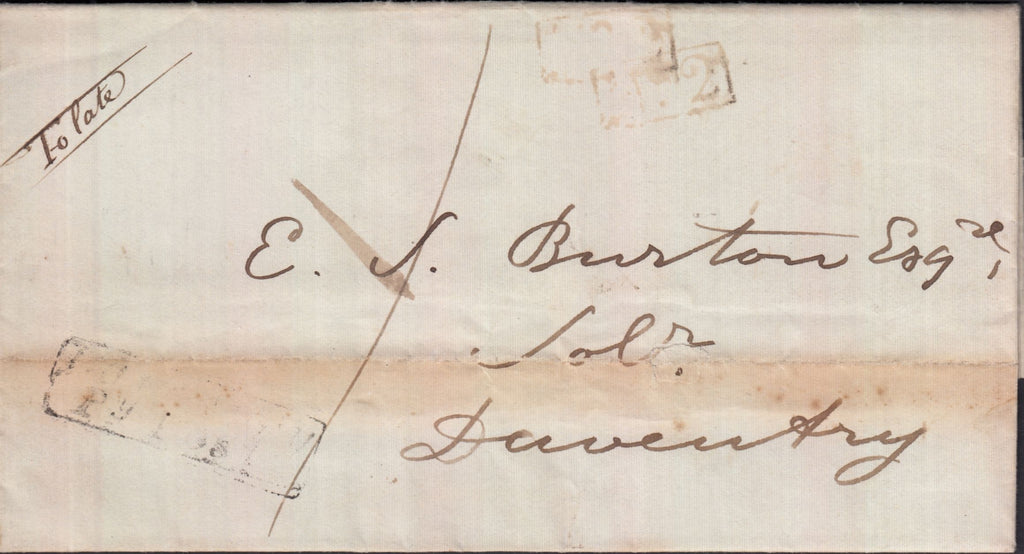 To late
2
E. S. Burton Esqre,
Solr.
Daventry
Py Post